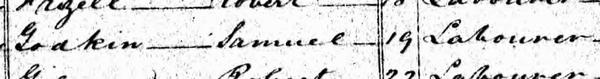 Frizell Robert 18 Labourer
Godkin Samuel 19 Labourer
Robert 22 Labourer